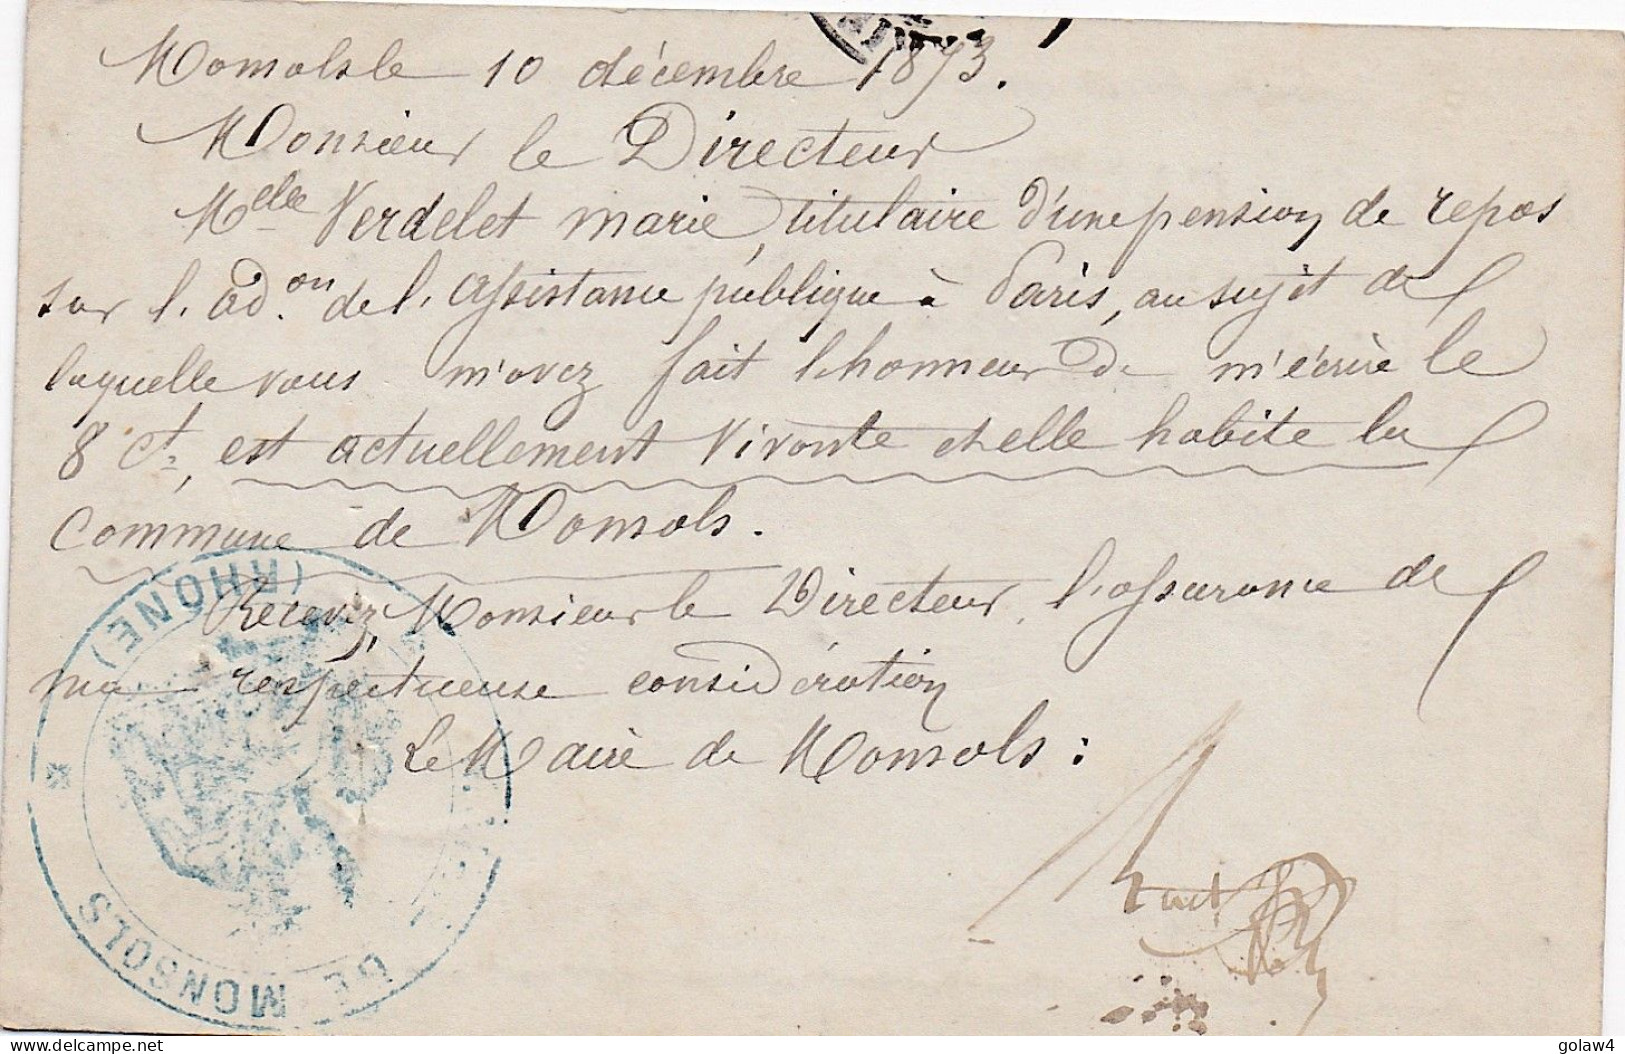 Monsols le 10 décembre 1873.
Monsieur le Directeur
Melle Verdelet marie, titulaire d'une pension de repos
sur l'adon. de l'assistance publique à Paris, au sujet de
laquelle vous m'avez fait l'honneur de m'écrire le
8 ct, est actuellement vivante et elle habite la
commune de Monsols.
Recevez, Monsieur le Directeur, l'assurance de
ma respectueuse considération
Le Maire de Monsols :
DE MONSOLS
(RHONE)
delcampe.net
golaw4